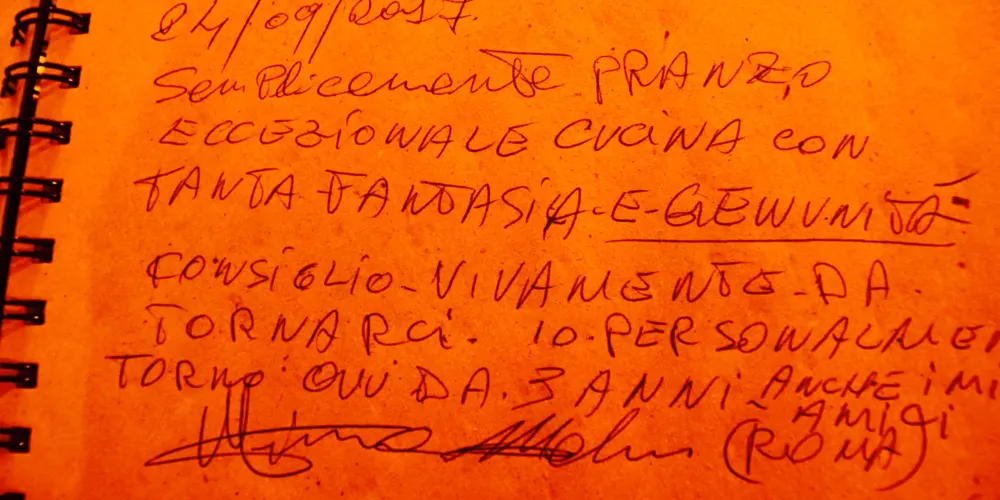 24/09/2017.
Semplicemente PRANZO
ECCEZIONALE CUCINA CON
TANTA FANTASIA-E-GIEWUNITÀ-
CONSIGLIO-VIVAMENTE-DA.
TORNARCI. IO.PERSONALMEN
TORNO QUI DA.3 ANNI ANCHE I MI
AMICI
(ROMA)